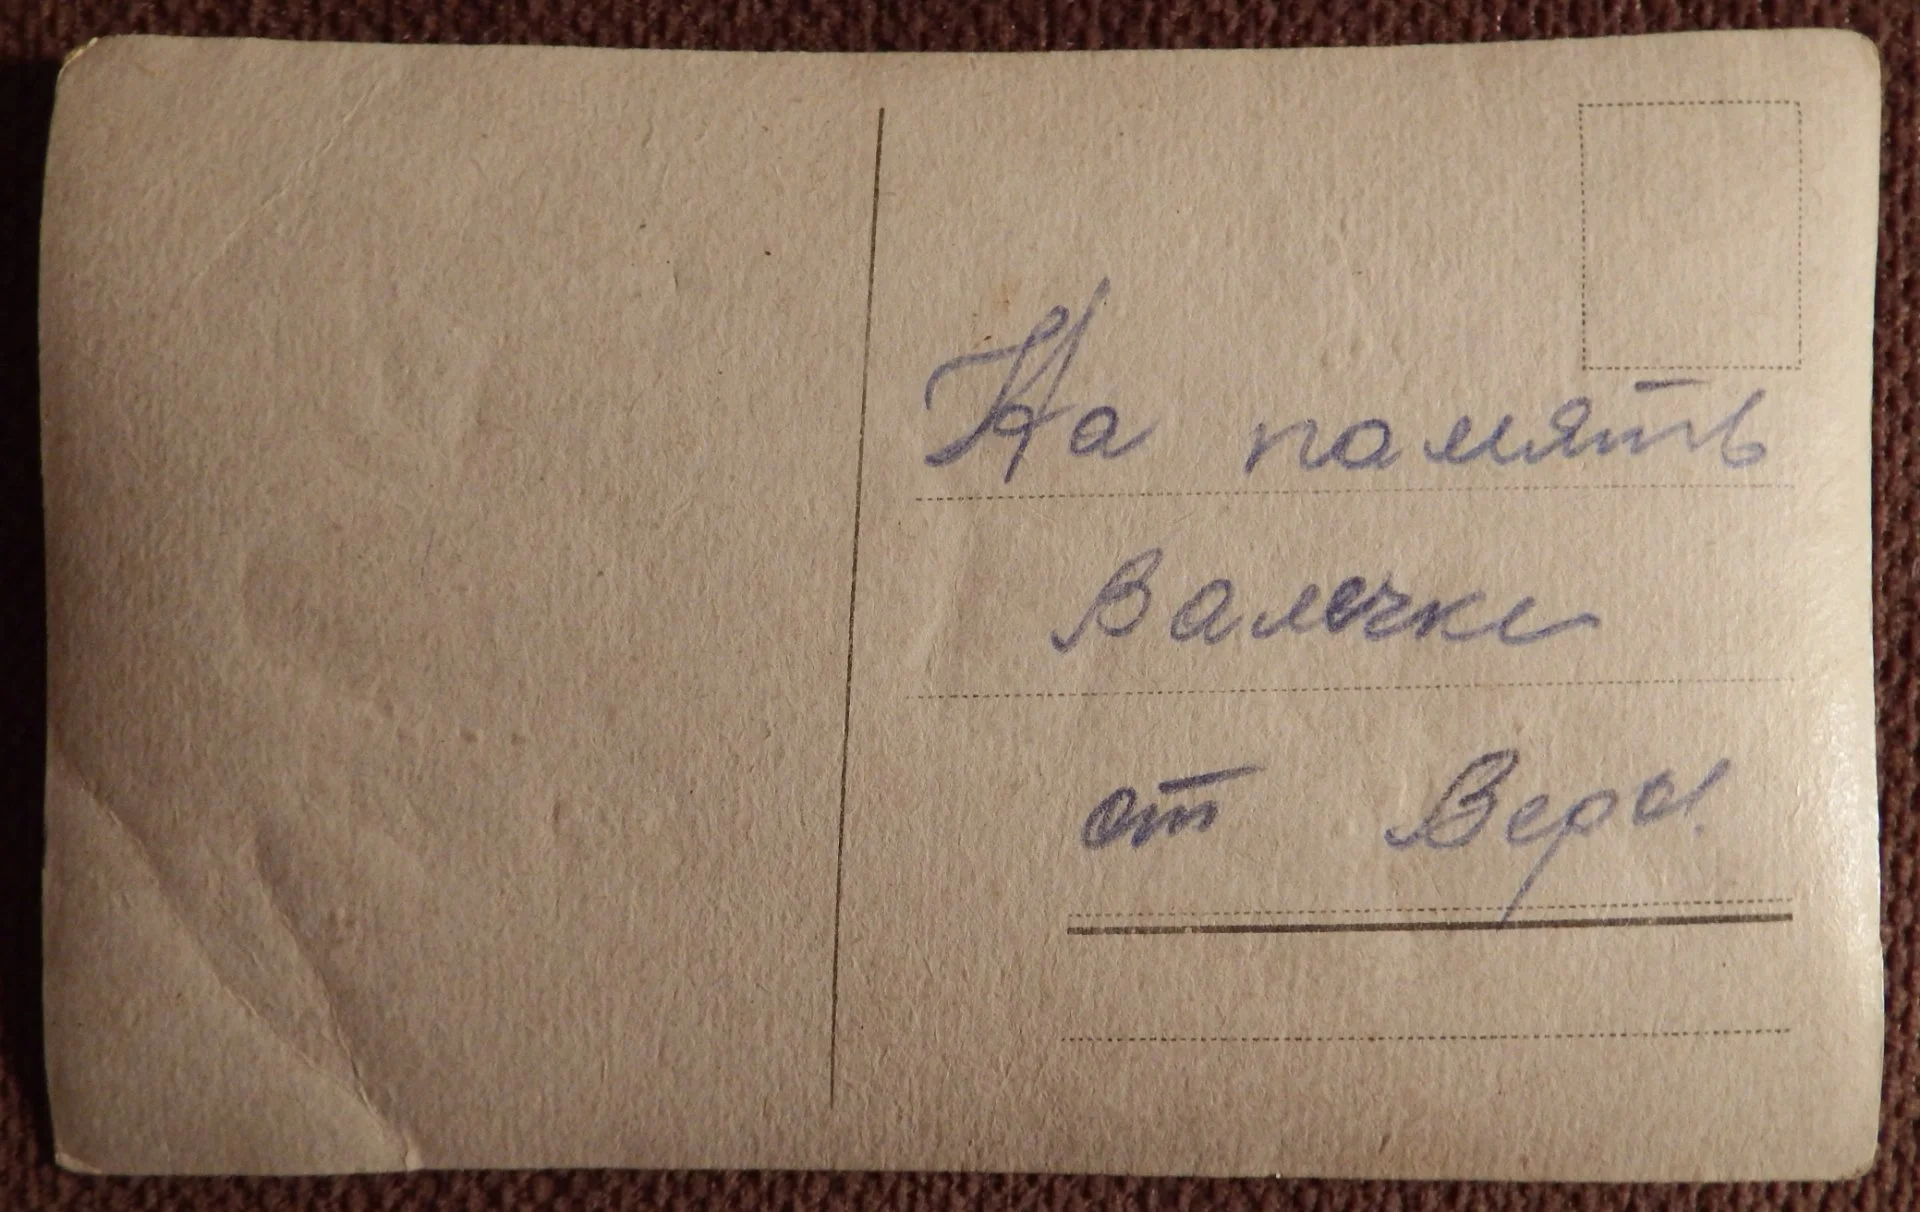 На память
Валечке
от Веры.